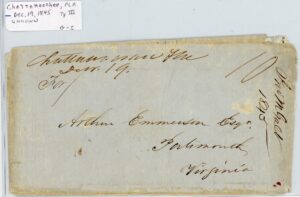 CHATTAHOOCHEE, FLA
DEC, 19, 1845 Ty III
UNKNOWN
Chattahoochee Fla
Decr. 19.
10
1845
Arthur Emmerson Esqr.
Portsmouth
Virginia